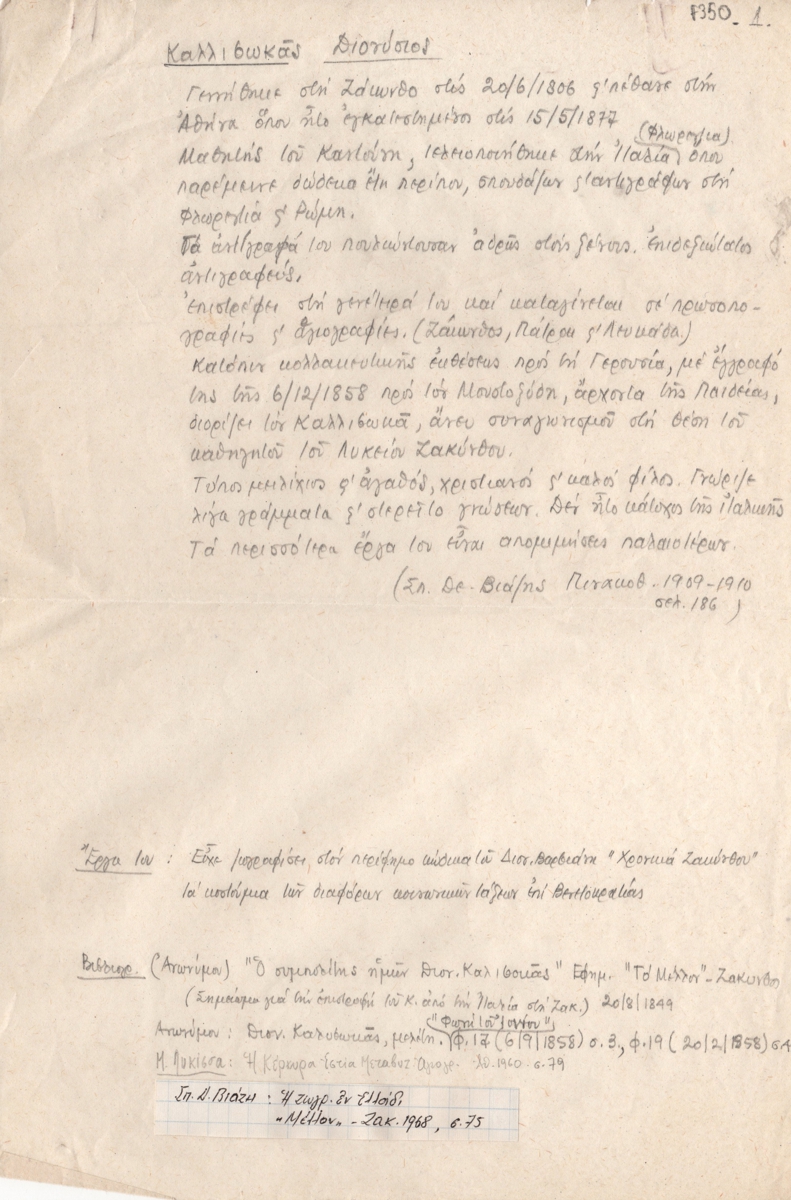 F350 - 1.
Καλλιβωκᾶς Διονύσιος
Γεννήθηκε στή Ζάκυνθο στίς 20/6/1806 ϗ' πέθανε στήν
Ἀθήνα ὅπου ἦτο ἐγκατεστημένος στίς 15/5/1877
(Φλωρεντία)
Μαθητής τοῦ Καντούνη, τελειοποιήθηκε στήν Ἰταλία ὅπου
παρέμεινε δώδεκα ἔτη περίπου, σπουδάζων ϗ' ἀντιγράφων στή
Φλωρεντία ϗ' Ρώμη.
Τά ἀντίγραφά του πουλιώντουσαν ἁδρῆς στούς ξένους. Ἐπιδεξιώτατος
ἀντιγραφεύς.
Ἐπιστρέφει στή γενέτειρά του καί καταγίνεται σέ προσωπο-
γραφίες ϗ' ἁγιογραφίες. (Ζάκυνθος, Πάτραι ϗ' Λευκάδα.)
Κατόπιν κολλακευτικῆς ἐκθέσεως πρός τή Γερουσία, μέ ἔγγραφό
της τῆς 6/12/1858 πρός τόν Μουστοξύδη, ἄρχοντα τῆς Παιδείας,
διορίζει τόν Καλλιβωκᾶ, ἄνευ συναγωνισμοῦ στή θέση τοῦ
καθηγητοῦ τοῦ Λυκείου Ζακύνθου.
Τύπος μειλίχιος ϗ' ἀγαθός, χριστιανός ϗ' καλός φίλος. Γνώριζε
λίγα γράμματα ϗ' στερεῖτο γνώσεων. Δέν ἦτο κάτοχος τῆς Ἰταλικῆς
Τά περισσότερα ἔργα του εἶναι απομιμήσεις παλαιοτέρων.
(Σπ. Δε-Βιάζης Πινακοθ. 1909-1910
σελ. 186 )
Ἔργα του : Εἶχε ζωγραφίσει στόν περίφημο κώδικα τοῦ Διον. Βαρβιάνη "Χρονικά Ζακύνθου"
τά κοστούμια τῶν διαφόρων κοινωνικῶν τάξεων ἐπί Βενετοκρατίας
Βιβλιογρ. (Ανωνύμου) "Ὁ συμπολίτης ἡμῶν Διον. Καλιβοκᾶς" Εφημ. "Τό Μέλλον" - Ζακύνθου
(Σημείωμα γιά τήν ἐπιστροφή τοῦ Κ. ἀπό τήν Ἰταλία στή Ζακ.) 20/8/1849
"Φωνή τοῦ Ἰονίου",
Ανωνύμου : Διον. Καλυβωκᾶς, μελέτη. φ. 17 (6/9/1858) σ. 3, φ. 19 (20/2/1858) σ. 4
Μ. Λυκίσσα : Ἡ Κέρκυρα 1960 σ. 79
Σπ. Δ. Βιάζη : Ἡ ζωγρ. ἐν Ἑλλάδι
"Μέλλον" - Ζακ. 1968, σ. 75